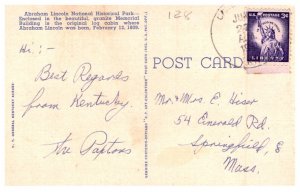 Abraham Lincoln National Historical Park—
Enclosed in the beautiful, granite Memorial
Building is the original log cabin where
Abraham Lincoln was born, February 12, 1809.
128
U.S. POSTAGE
3¢
LIBERTY
POST CARD
Hi :-
Best Regards
from Kentucky.
The Paxtons
Mr. & Mrs. E. Hiser
54 Emerald Rd.
Springfield
Mass.